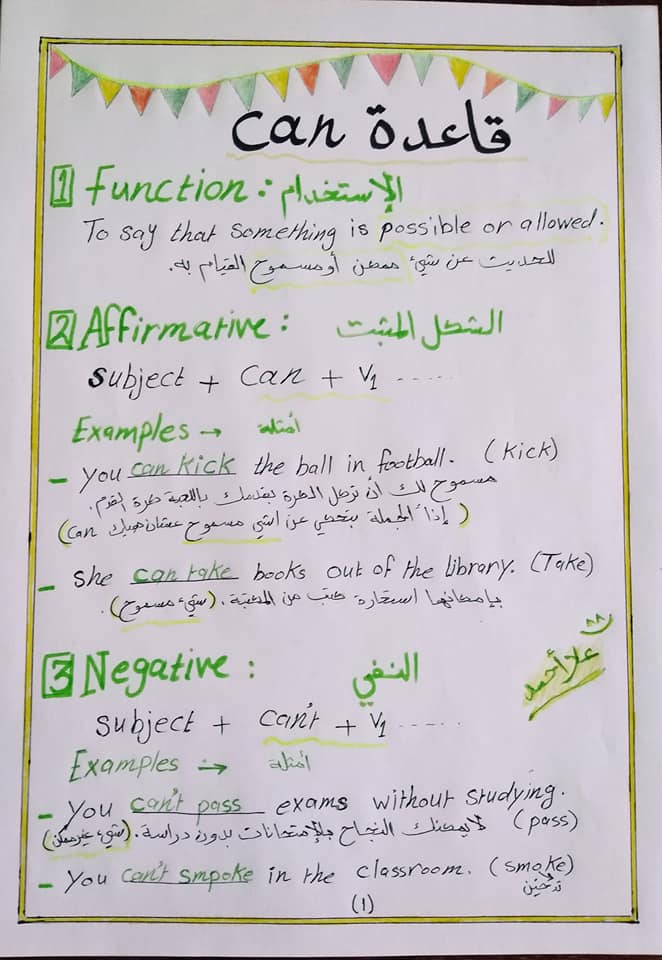 قاعدة can
1 Function : الإستخدام
To say that something is possible or allowed.
للحديث عن شيء ممكن أو مسموح القيام به.
2 Affirmative : الشكل المثبت
Subject + Can + V1 .....
Examples → أمثلة
- You can kick the ball in football. (kick)
مسموح لك أن تركل الكرة بقدمك باللعبة كرة القدم.
(إذاً الجملة بتحكي عن إشي مسموح عشان هيك can)
- She can take books out of the library. (Take)
بإمكانها استعارة كتب من المكتبة. (شيء مسموح)
3 Negative : النفي
علا أحمد
Subject + Can't + V1 .....
Examples → أمثلة
- You can't pass exams without studying.
لا يمكنك النجاح بالإمتحانات بدون دراسة. (شيء غير ممكن) (pass)
- You can't smpoke in the classroom. (smoke)
تدخين
(1)